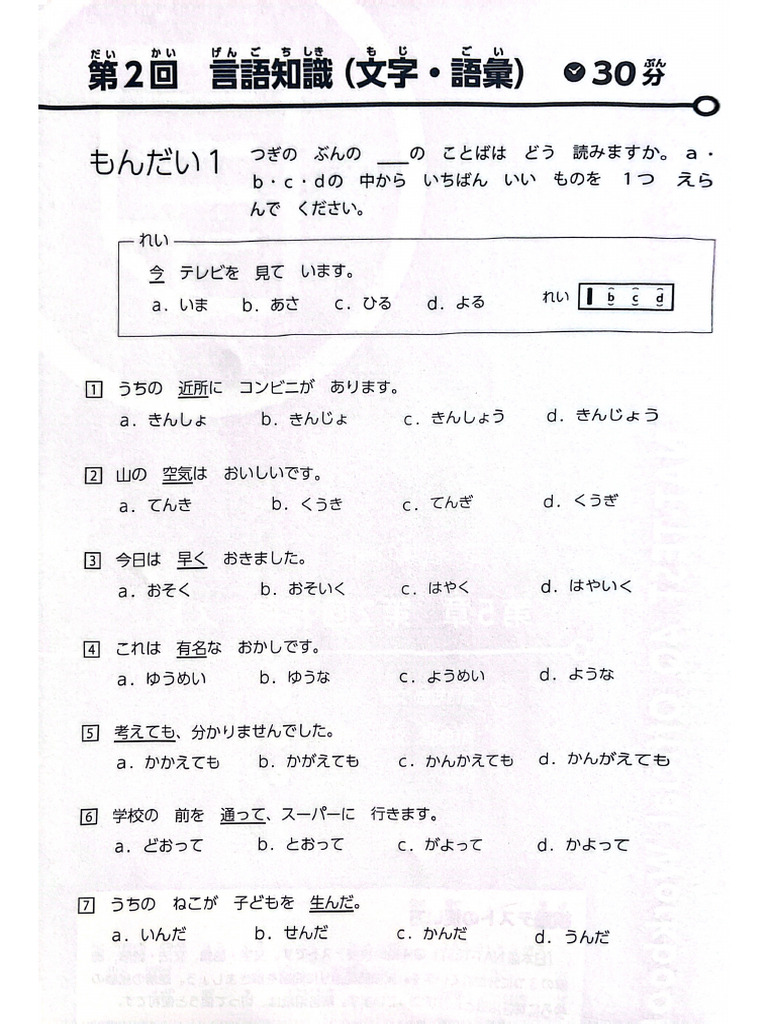 だい かい げんごちしき もじ ごい ぷん
第2回 言語知識(文字・語彙) 30分
もんだい1 つぎの ぶんの ___の ことばは どう 読みますか。a・
b・c・dの 中から いちばん いい ものを 1つ えら
んで ください。
れい
今 テレビを 見て います。
a. いま b. あさ c. ひる d. よる れい b c d
1 うちの 近所に コンビニが あります。
a. きんしょ b. きんじょ c. きんしょう d. きんじょう
2 山の 空気は おいしいです。
a. てんき b. くうき c. てんぎ d. くうぎ
3 今日は 早く おきました。
a. おそく b. おそいく c. はやく d. はやいく
4 これは 有名な おかしです。
a. ゆうめい b. ゆうな c. ようめい d. ような
5 考えても、分かりませんでした。
a. かかえても b. かがえても c. かんかえても d. かんがえても
6 学校の 前を 通って、スーパーに 行きます。
a. どおって b. とおって c. がよって d. かよって
7 うちの ねこが 子どもを 生んだ。
a. いんだ b. せんだ c. かんだ d. うんだ